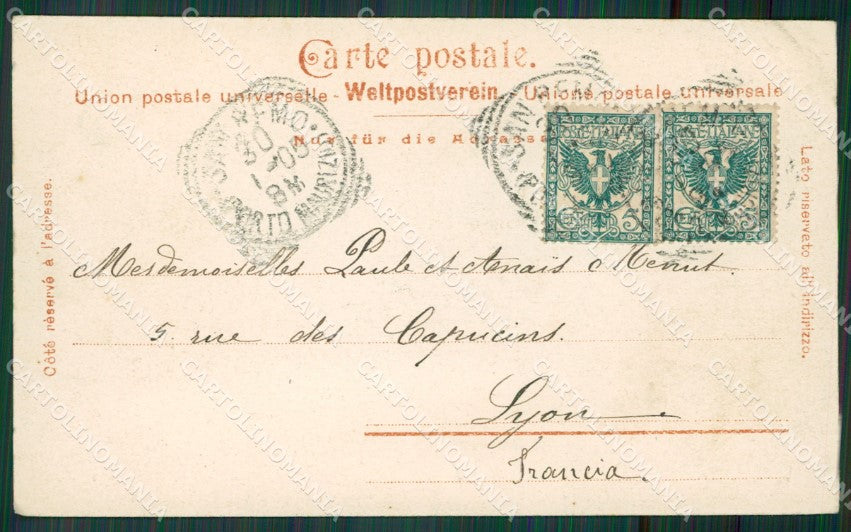 Carte postale.
Union postale universelle - Weltpostverein - Unione postale universale
Nur für die Adresse
SAN REMO
30
1 05
8 M
PORTO MAURIZIO
SAN REMO
POSTE ITALIANE
POSTE ITALIANE
CENT. 5
CENT. 5
Côté réservé à l'adresse.
Lato riservato all'indirizzo.
Mesdemoiselles Paule et Anaïs Menut.
5 rue des Capucins.
Lyon
Francia.
CARTOLINOMANIA